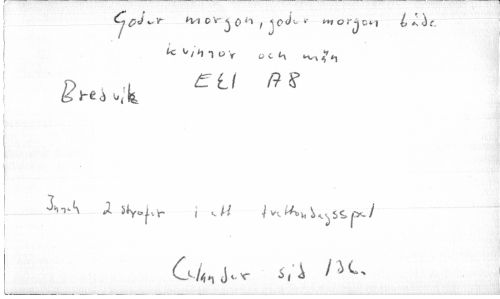 Goder morgon, goder morgon både
kvinnor och män
EEI A8
Bredvik
2 strofer i ett trettondagsspel
Celander sid 136.